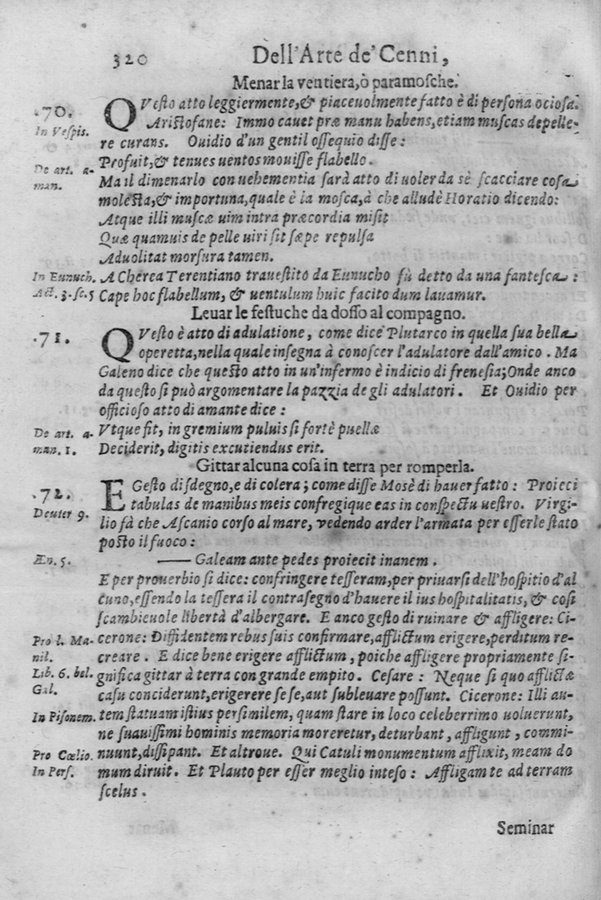 320 Dell'Arte de' Cenni,
Menar la ventiera, ò paramosche.
.70. QVesto atto leggiermente, & piaceuolmente fatto è di persona ociosa.
In Vespis. Aristofane: Immo cauet præ manu habens, etiam muscas depelle-
re curans. Ouidio d'un gentil ossequio disse:
De art. a- Profuit, & tenues uentos mouisse flabello.
man. Ma il dimenarlo con uehementia sarà atto di uoler da sè scacciare cosa
molesta, & importuna, quale è la mosca, à che alludè Horatio dicendo:
Atque illi muscæ uim intra præcordia misit
Quæ quamuis de pelle uiri sit sæpe repulsa
Aduolitat morsura tamen.
In Eunuch. A Cherea Terentiano trauestito da Eunucho fù detto da una fantesca:
Act. 3. sc. 5 Cape hoc flabellum, & uentulum huic facito dum lauamur.
Leuar le festuche da dosso al compagno.
.71. QVesto è atto di adulatione, come dice Plutarco in quella sua bella
operetta, nella quale insegna à conoscer l'adulatore dall'amico. Ma
Galeno dice che questo atto in un'infermo è indicio di frenesia; Onde anco
da questo si può argomentare la pazzia de gli adulatori. Et Ouidio per
officioso atto di amante dice:
De art. a- Vtque fit, in gremium puluis si fortè puellæ
man. 1. Deciderit, digitis excutiendus erit.
Gittar alcuna cosa in terra per romperla.
.72. E Gesto di sdegno, e di colera; come disse Mosè di hauer fatto: Proieci
Deuter 9. tabulas de manibus meis confregique eas in conspectu uestro. Virgi-
lio fà che Ascanio corso al mare, vedendo arder l'armata per esserle stato
posto il fuoco:
Æn. 5. —— Galeam ante pedes proiecit inanem.
E per prouerbio si dice: confringere tesseram, per priuarsi dell'hospitio d'al
cuno, essendo la tessera il contrasegno d'hauere il ius hospitalitatis, & cosi
scambieuole libertà d'albergare. E anco gesto di ruinare & affligere: Ci-
Pro l. Ma- cerone: Diffidentem rebus suis confirmare, afflictum erigere, perditum re-
nil. creare. E dice bene erigere afflictum, poiche affligere propriamente si-
Lib. 6. bel. gnifica gittar à terra con grande empito. Cesare: Neque si quo afflictæ
Gal. casu conciderunt, erigerere sese, aut subleuare possunt. Cicerone: Illi au-
In Pisonem. tem statuam istius persimilem, quam stare in loco celeberrimo uoluerunt,
ne suauissimi hominis memoria moreretur, deturbant, affligunt, commi-
Pro Cœlio. nuunt, dissipant. Et altroue. Qui Catuli monumentum afflixit, meam do
In Pers. mum diruit. Et Plauto per esser meglio inteso: Affligam te ad terram
scelus.
Seminar